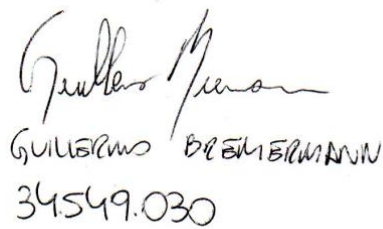 Guillermo Bremermann
GUILLERMO BREMERMANN
34.549.030